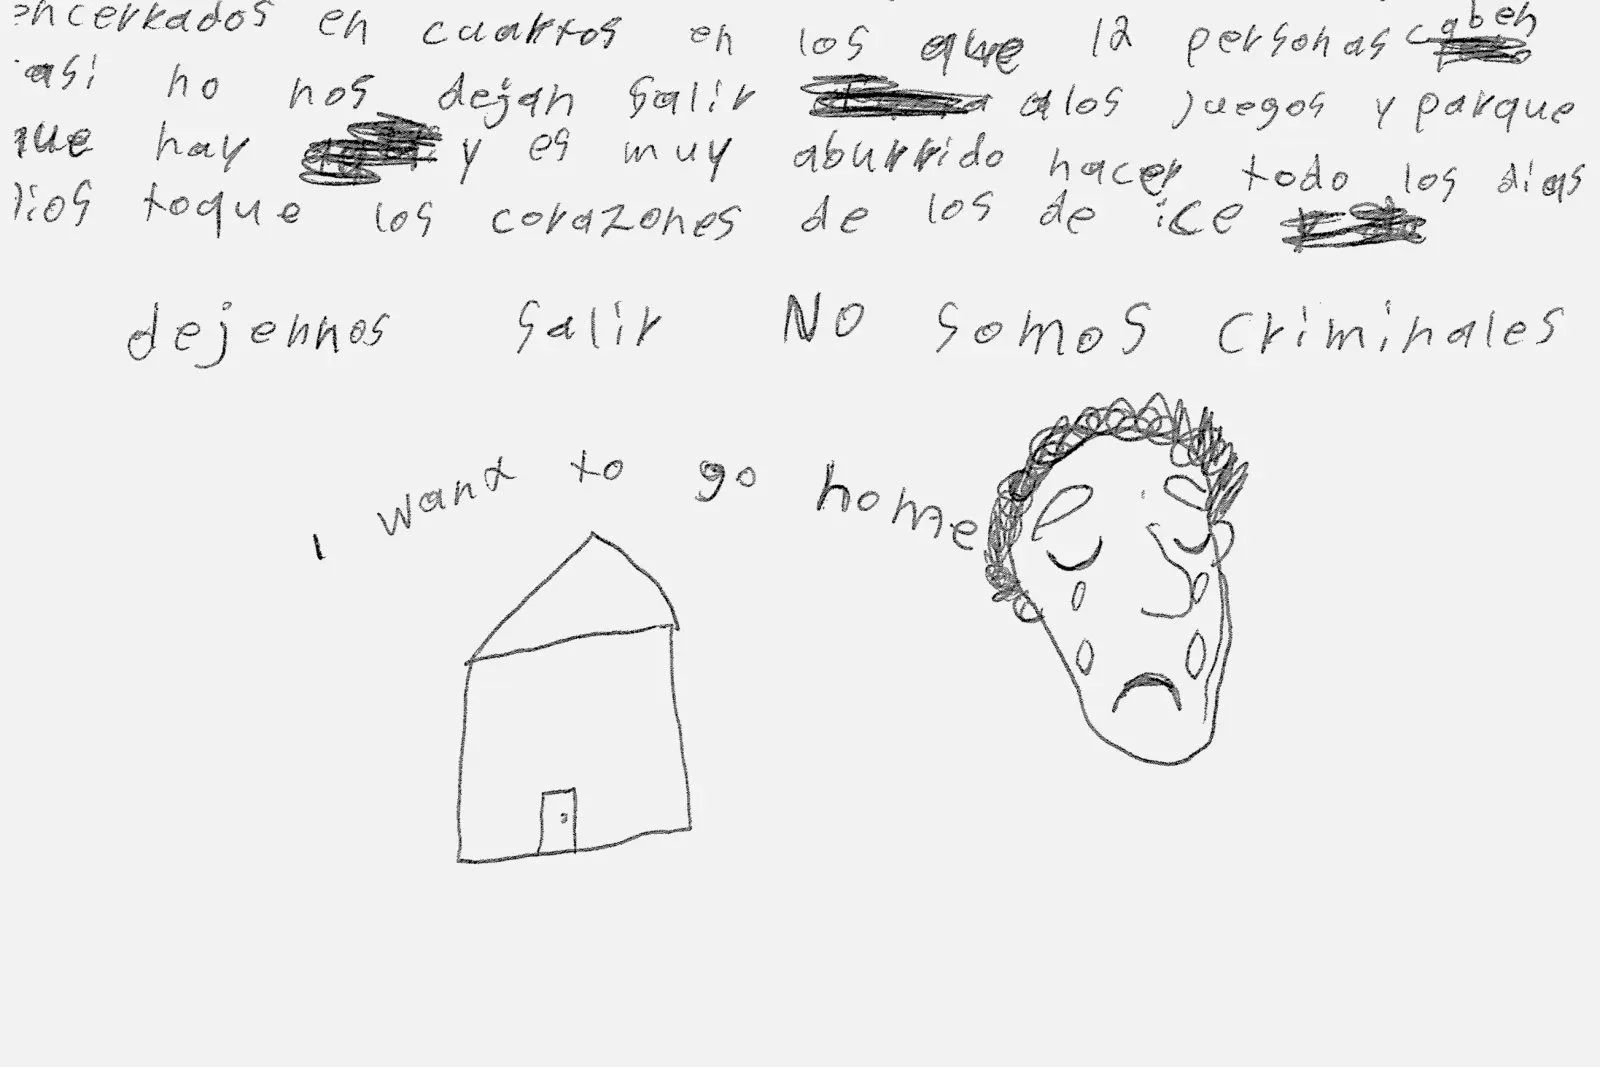 encerrados en cuartos en los que 12 personas caben
asi no nos dejan salir alos juegos y parque
que hay y es muy aburrido hacer todo los dias
dios toque los corazones de los de ice
dejennos salir NO somos criminales
I want to go home